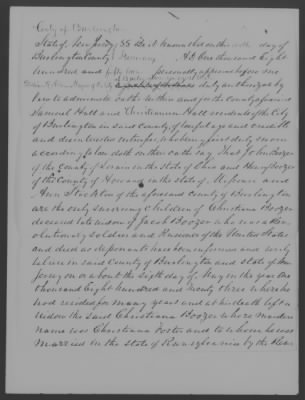 City of Burlington
State of New Jersey SS Be it known that on this day of
Burlington County January A.D. One thousand Eight
hundred and fifty personally appeared before me
duly authorized by
law to administer oaths within and for the County aforesaid
Samuel Hall and Christiann Hall residents of the City
of Burlington in said County of lawful age and credible
and disinterested witnesses who being first duly sworn
according to law doth on their oaths say That John Boozer
of the County of in the state of Ohio and Henry Boozer
of the County of Howard in the state of Missouri and
Ann Stockton of the aforesaid County of Burlington
are the only surviving children of Christiana Boozer
deceased late widow of Jacob Boozer who was a Rev-
olutionary soldier and Pensioner of the United States
and died as deponants have been informed and verily
believe in said County of Burlington and State of New
Jersey on or about the eighth day of May in the year One
thousand Eight hundred and Twenty three where he
had resided for many years and at his death left a
Widow the said Christiana Boozer whose maiden
name was Christiana Foster and to whom he was
Married in the state of Pennsylvania by the Rev